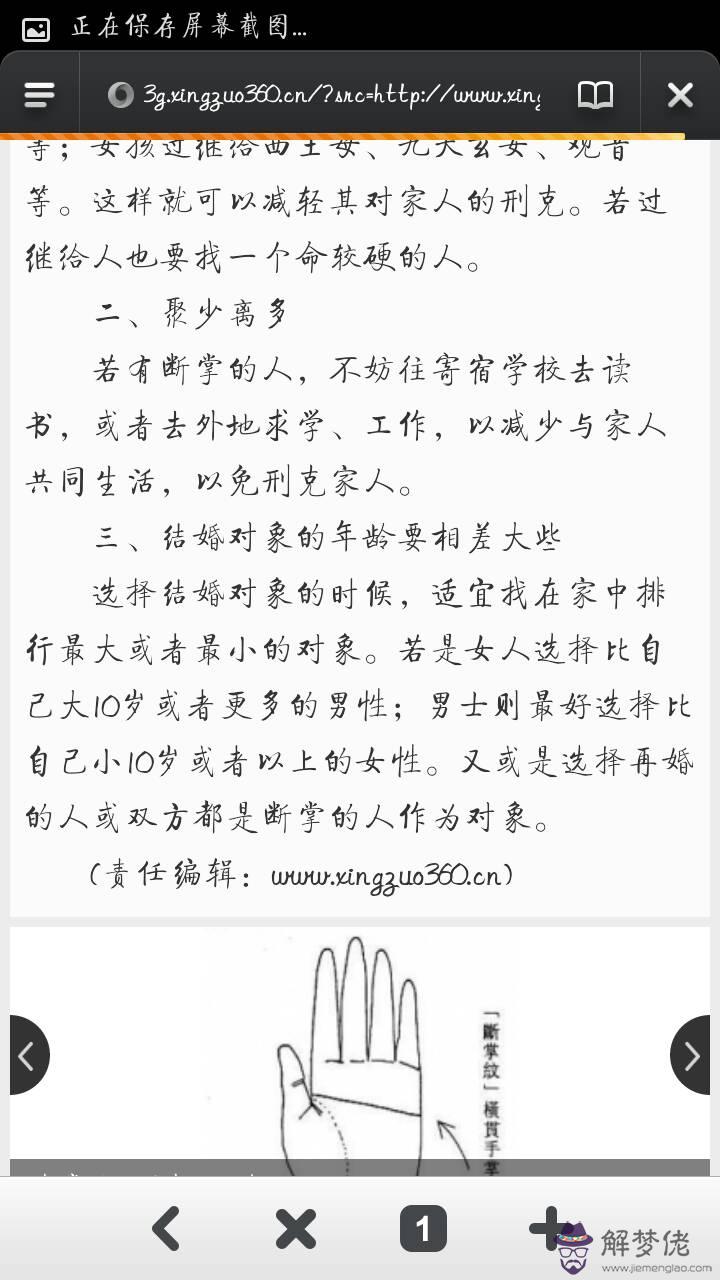 正在保存屏幕截图...
3g.xingzuo360.cn/?src=http://www.xing
等；女孩过继给西王母、九天玄女、观音
等。这样就可以减轻其对家人的刑克。若过
继给人也要找一个命较硬的人。
二、聚少离多
若有断掌的人，不妨往寄宿学校去读
书，或者去外地求学、工作，以减少与家人
共同生活，以免刑克家人。
三、结婚对象的年龄要相差大些
选择结婚对象的时候，适宜找在家中排
行最大或者最小的对象。若是女人选择比自
己大10岁或者更多的男性；男士则最好选择比
自己小10岁或者以上的女性。又或是选择再婚
的人或双方都是断掌的人作为对象。
（责任编辑：www.xingzuo360.cn）
「斷掌紋」橫貫手掌
1
解梦佬
www.jiemenglao.com